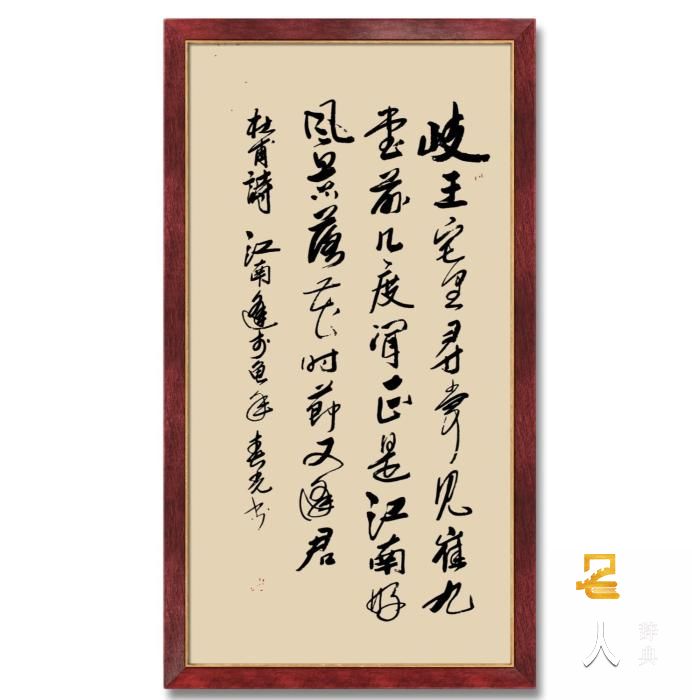 岐王宅里寻常见崔九
堂前几度闻正是江南好
风景落花时节又逢君
杜甫詩 江南逢李龟年 春光书
名人辞典